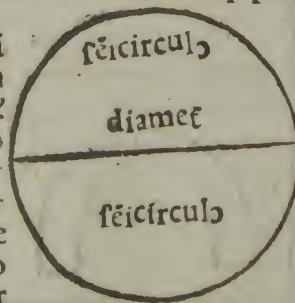 ſēicirculꝯ
diamet̄
ſēicirculꝯ